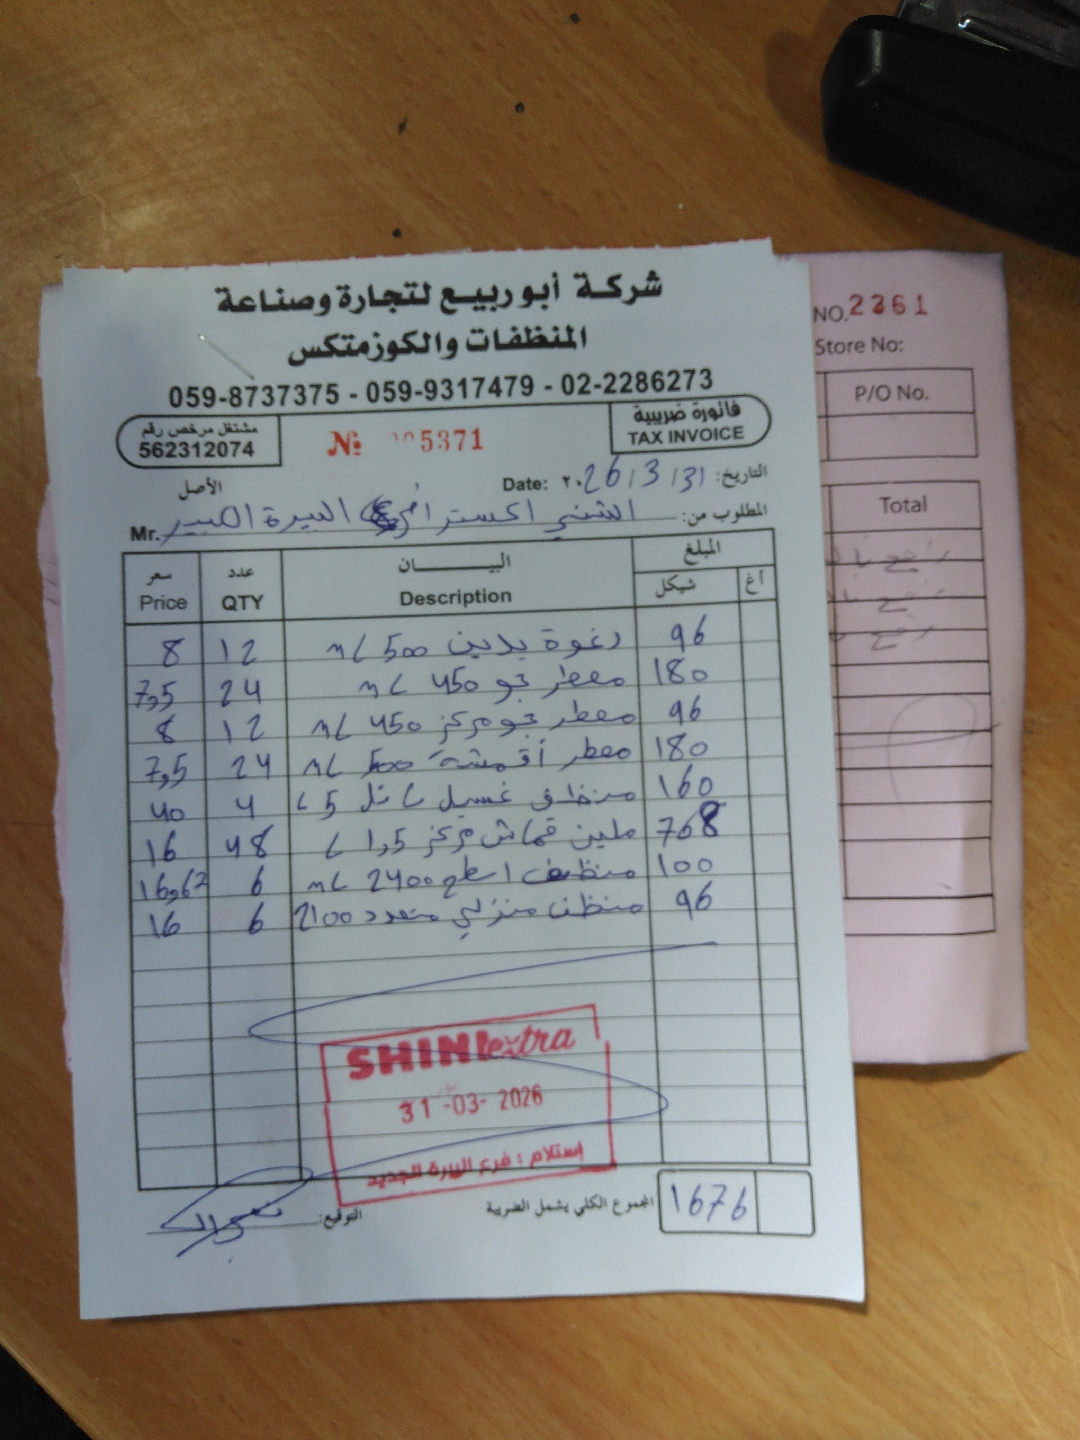 شركة أبوربيع لتجارة وصناعة
المنظفات والكوزمتكس
059-8737375 - 059-9317479 - 02-2286273
مشتغل مرخص رقم
562312074
№ 5371
فاتورة ضريبية
TAX INVOICE
الأصل
Date: ٢٠26/3/31 التاريخ:
Mr. الشني اكسترا البيرة المطلوب من:
سعر Price عدد QTY البيــــان Description المبلغ شيكل أغ
8 12 رغوة يدين 500 mL 96
7,5 24 معطر جو 450 mL 180
8 12 معطر جو مركز 450 mL 96
7,5 24 معطر أقمشة 500 mL 180
40 4 منظف غسيل 5 L 160
16 48 ملين قماش مركز 1,5 L 768
6 منظف اسطح 2400 mL 100
16 6 منظف منزلي متعدد 2100 96
SHINI extra
31 -03- 2026
إستلام : فرع البيرة الجديد
التوقيع:
المجموع الكلي يشمل الضريبة 1676
NO. 2361
Store No:
P/O No.
Total